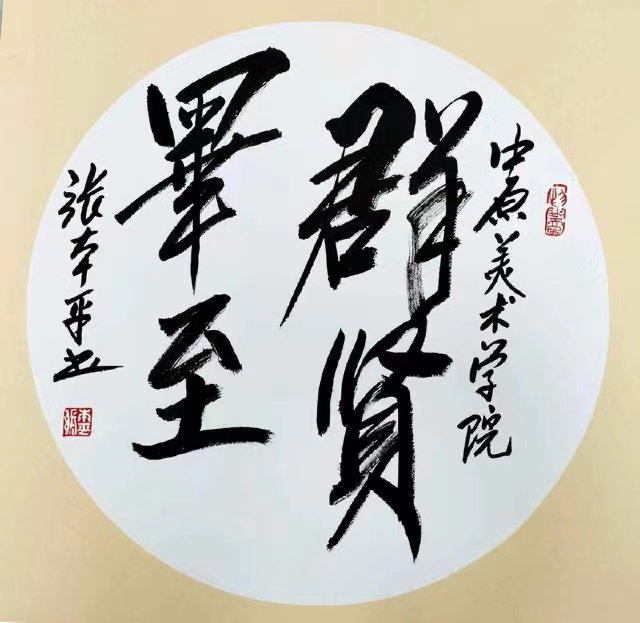 中原美术学院
群贤
畢至
张本平书